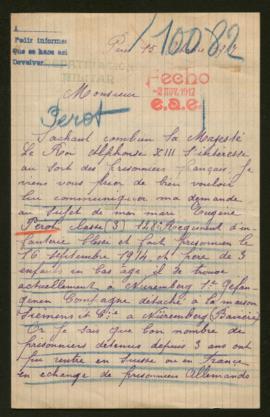 A
Pedir informes
Que se hace así
Devolver
10082
Paris 15
MILITAR
Fecho
-2 NOV. 1917
e.a.e.
Monsieur
Perot
Sachant combien Sa Majesté
Le Roi Alphonse XIII s'intéresse
au sort des prisonniers français je
viens vous prier de bien vouloir
lui communiquer ma demande
au sujet de mon mari Eugène
Perot classe 128e Régiment d'in
fanterie blessé et fait prisonnier le
16 septembre 1914 et père de 3
enfants en bas âge il se trouve
actuellement à Nuremberg 1e Gefan
genen Compagne détaché à la maison
Siemens et Cie à Nuremberg (Bavière)
Or je sais que bon nombre de
prisonniers détenus depuis 3 ans ont
pu rentré en Suisse ou en France
en échange de prisonniers Allemands